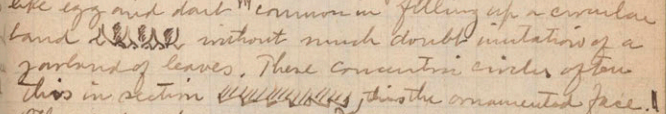 like egg and dart "common in" filling up a circular
band without much doubt imitation of a
garland of leaves. These concentric circles often
this in section , this the ornamented face.